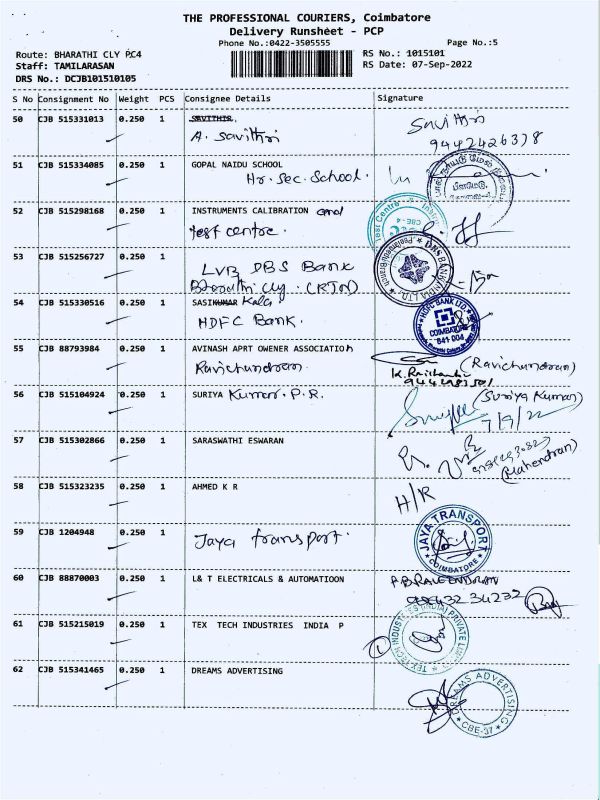 THE PROFESSIONAL COURIERS, Coimbatore
Delivery Runsheet - PCP
Phone No.:0422-3505555
Page No.:5
Route: BHARATHI CLY PC4
RS No.: 1015101
Staff: TAMILARASAN
RS Date: 07-Sep-2022
DRS No.: DCJB101510105
S No Consignment No Weight PCS Consignee Details Signature
50 CJB 515331013 0.250 1 SAVITHIR.
A. Savithri
Savithri
9442426378
51 CJB 515334085 0.250 1 GOPAL NAIDU SCHOOL
Hr. Sec. School.
52 CJB 515298168 0.250 1 INSTRUMENTS CALIBRATION and
test centre.
CBE-4
53 CJB 515256727 0.250 1
LVB DBS Bank
Bharathi cly. (RTN)
DBS BANK INDIA LTD.
54 CJB 515330516 0.250 1 SASIKUMAR Kala
HDFC Bank.
HDFC BANK LTD
COIMBATORE
641 004
55 CJB 88793984 0.250 1 AVINASH APRT OWENER ASSOCIATION
Ravichandran.
(Ravichandran)
56 CJB 515104924 0.250 1 SURIYA Kumar. P.R.
(Suriya Kumar)
7/9/22
57 CJB 515302866 0.250 1 SARASWATHI ESWARAN
(Mahendran)
58 CJB 515323235 0.250 1 AHMED K R
H/R
59 CJB 1204948 0.250 1
Jaya transport.
JAYA TRANSPORT
COIMBATORE
60 CJB 88870003 0.250 1 L& T ELECTRICALS & AUTOMATIOON
61 CJB 515215019 0.250 1 TEX TECH INDUSTRIES INDIA P
TEX TECH INDUSTRIES (INDIA) PRIVATE LIMITED
62 CJB 515341465 0.250 1 DREAMS ADVERTISING
DREAMS ADVERTISING
CBE-37